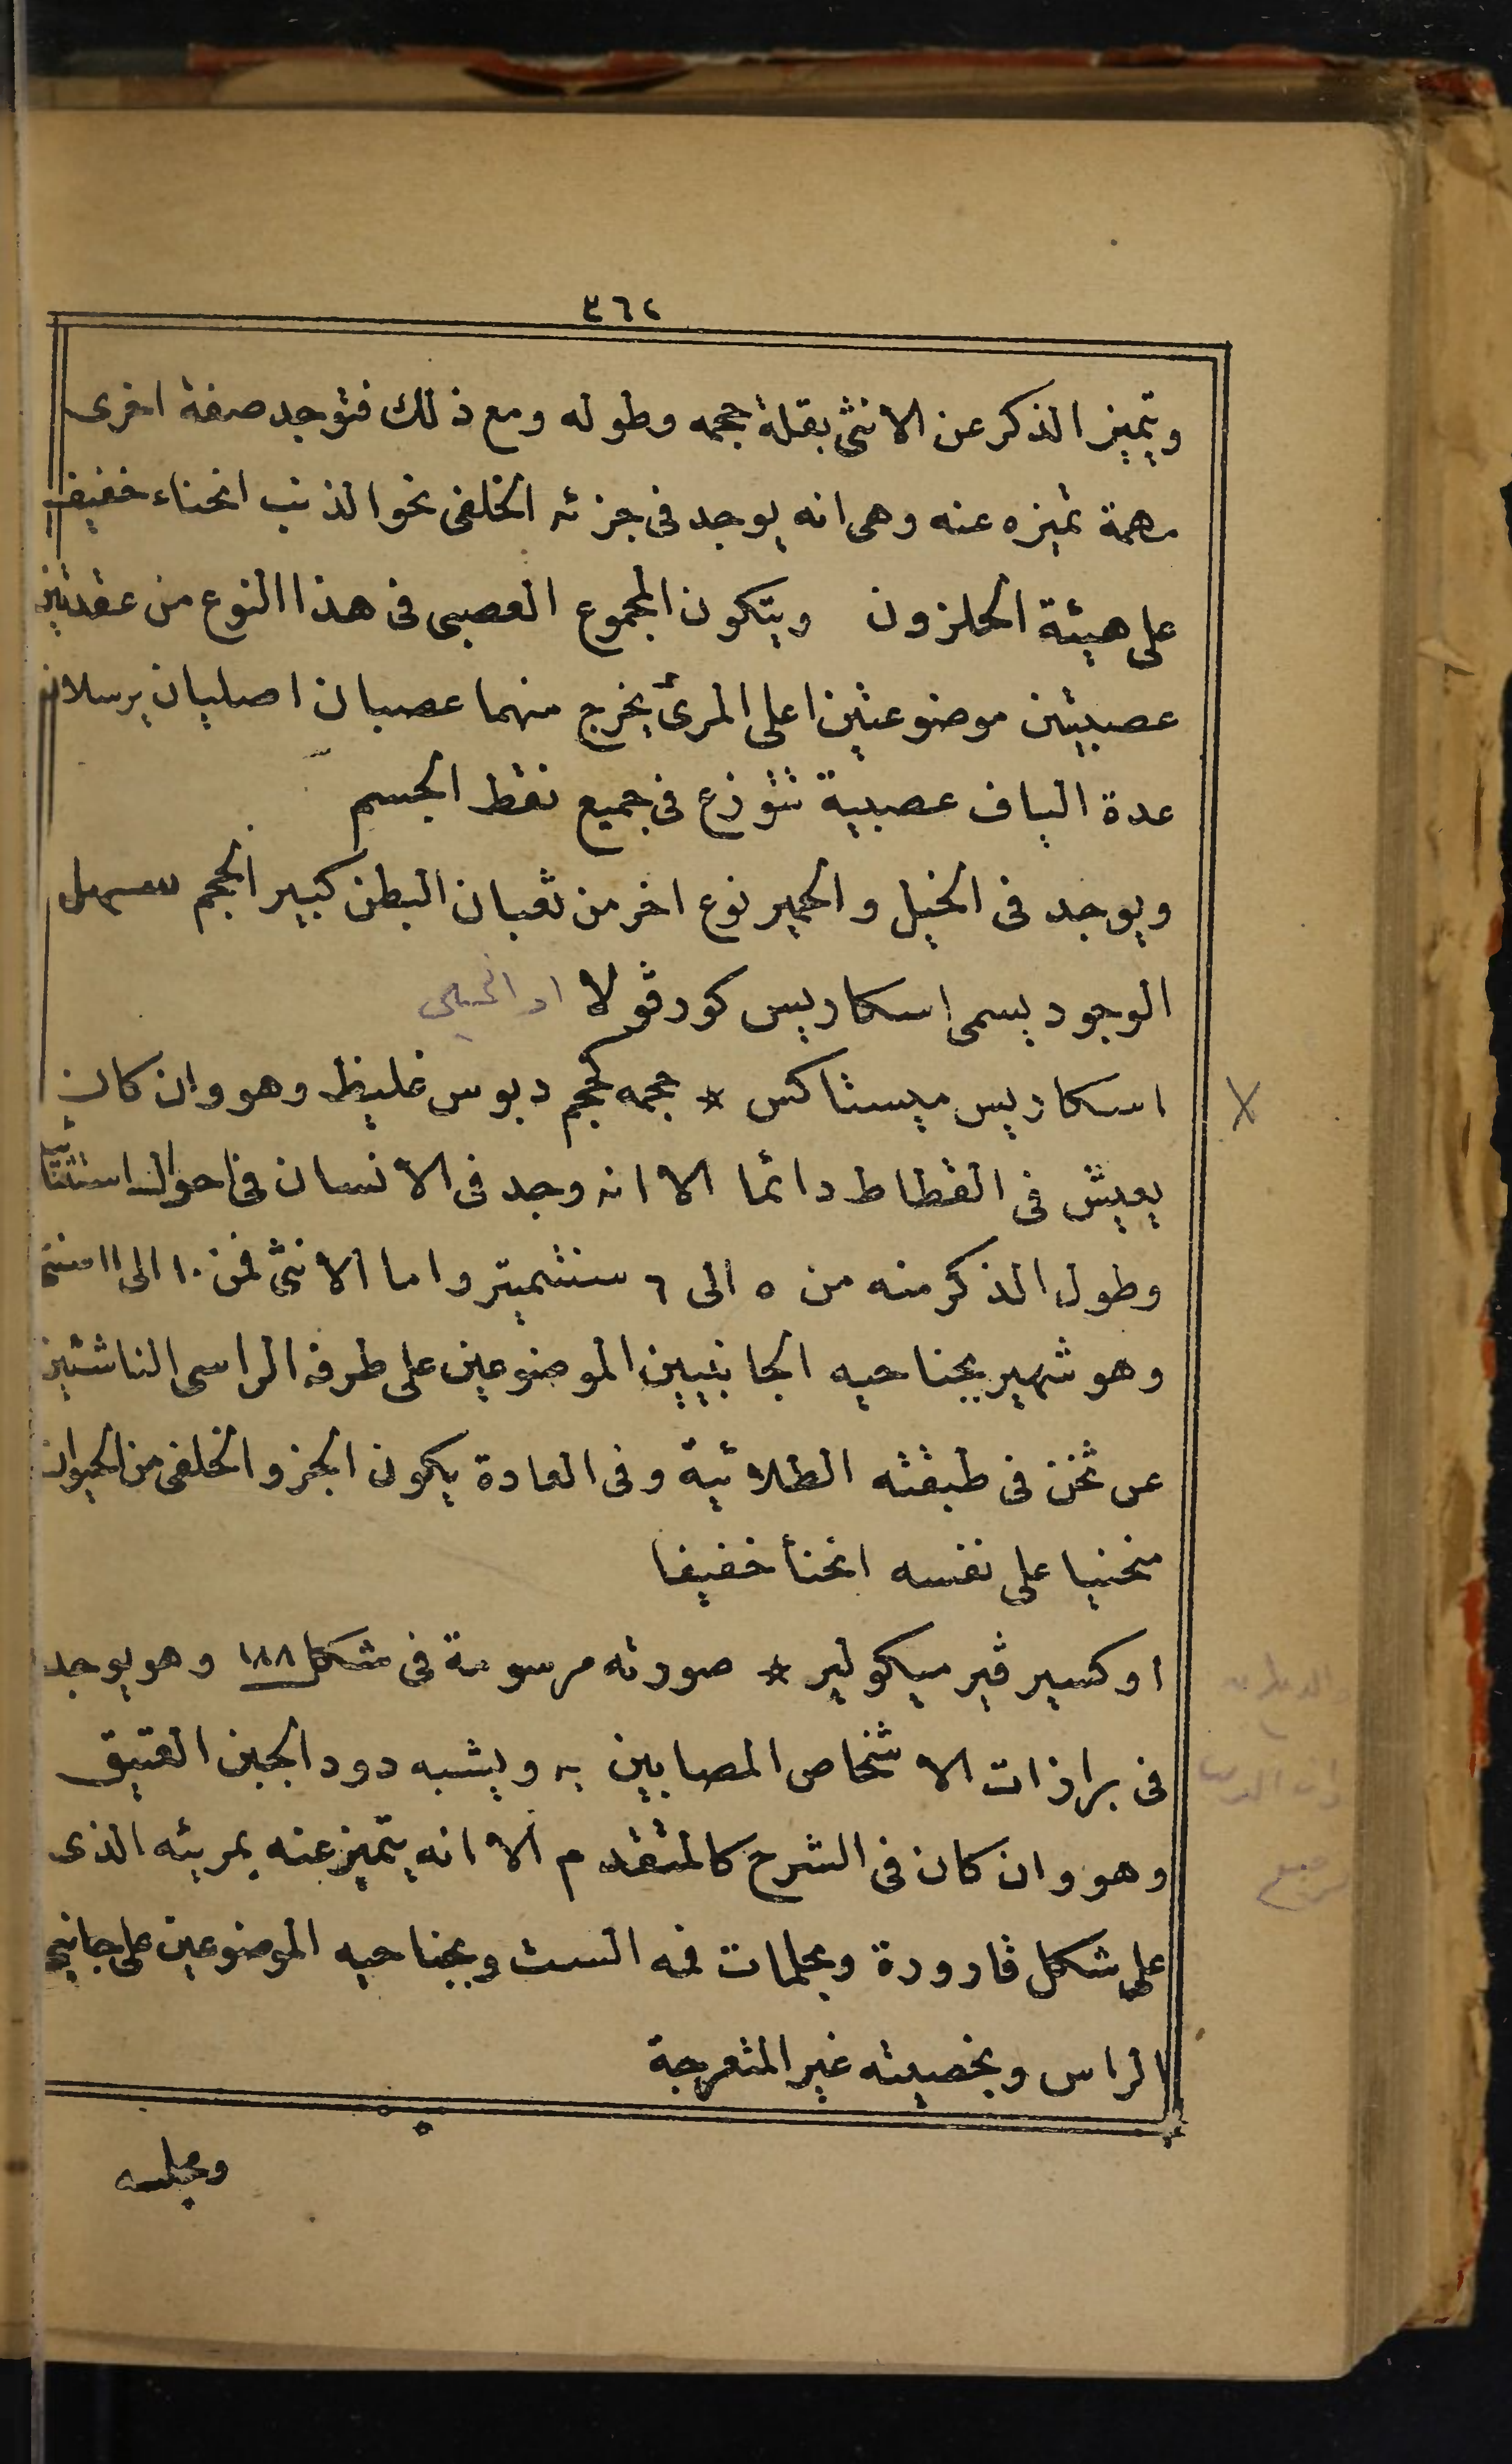 ٣٦٢
ويتميز الذكر عن الانثى بقلة حجمه وطوله ومع ذلك فتوجد صفة اخرى
مهمة تميزه عنه وهى انه يوجد فى جزئه الخلفى نحو الذنب انحناء خفيف
على هيئة الحلزون ويتكون المجموع العصبى فى هذا النوع من عقدتين
عصبيتين موضوعتين اعلى المرئ يخرج منهما عصبان اصليان يرسلان
عدة الياف عصبية تتوزع فى جميع نقط الجسم
ويوجد فى الخيل والحمير نوع اخر من ثعبان البطن كبير الحجم سهل
الوجود يسمى اسكاريس كورڤولا او الخيلى
اسكاريس ميستاكس * حجمه كحجم دبوس غليظ وهو وان كان
يعيش فى القطاط دائما الا انه وجد فى الانسان فى احوال استثنائية
وطول الذكر منه من ٥ الى ٦ سنتميتر واما الانثى فمن ١٠ الى ١١ سنتى
وهو شهير بجناحيه الجانبيين الموضوعين على طرفه الراسى الناشئين
عن ثخن فى طبقته الطلائية وفى العادة يكون الجزو الخلفى من الحيوان
منحنيا على نفسه انحنأ خفيفا
اوكسير ڤير ميكولير * صورته مرسومة فى شكل ١٨٨ وهو يوجد
فى برازات الاشخاص المصابين به ويشبه دود الجبن العتيق
وهو وان كان فى الشرح كالمتقدم الا انه يتميز عنه بمريئه الذى
على شكل قارورة وبحلمات فمه الست وبجناحيه الموضوعين على جانبى
الراس وبخصيته غير المتعرجة
ومجلسه